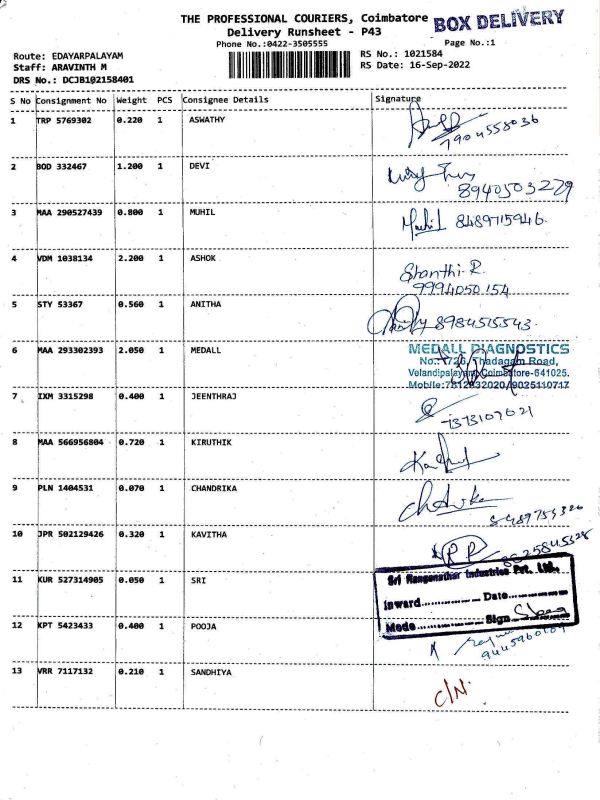 THE PROFESSIONAL COURIERS, Coimbatore
BOX DELIVERY
Delivery Runsheet - P43
Phone No.:0422-3505555
Page No.:1
Route: EDAYARPALAYAM
RS No.: 1021584
Staff: ARAVINTH M
RS Date: 16-Sep-2022
DRS No.: DCJB102158401
S No Consignment No Weight PCS Consignee Details Signature
1 TRP 5769302 0.220 1 ASWATHY
7904558036
2 BOD 332467 1.200 1 DEVI
8940503279
3 MAA 290527439 0.800 1 MUHIL
Muhil 8489715946
4 VDM 1038134 2.200 1 ASHOK
Shanthi. R
9994050154
5 STY 53367 0.560 1 ANITHA
8984515543
6 MAA 293302393 2.050 1 MEDALL
MEDALL DIAGNOSTICS
No.: 1726, Thadagam Road,
Velandipalayam, Coimbatore-641025.
Mobile:7812832020/9025110717
7 IXM 3315298 0.400 1 JEENTHRAJ
7373107021
8 MAA 566956804 0.720 1 KIRUTHIK
9 PLN 1404531 0.070 1 CHANDRIKA
10 JPR 502129426 0.320 1 KAVITHA
RP
11 KUR 527314905 0.050 1 SRI
Sri Ranganathar Industries Pvt. Ltd.,
Inward............... Date...............
Mode............... Sign...............
12 KPT 5423433 0.400 1 POOJA
13 VRR 7117132 0.210 1 SANDHIYA
C/N.